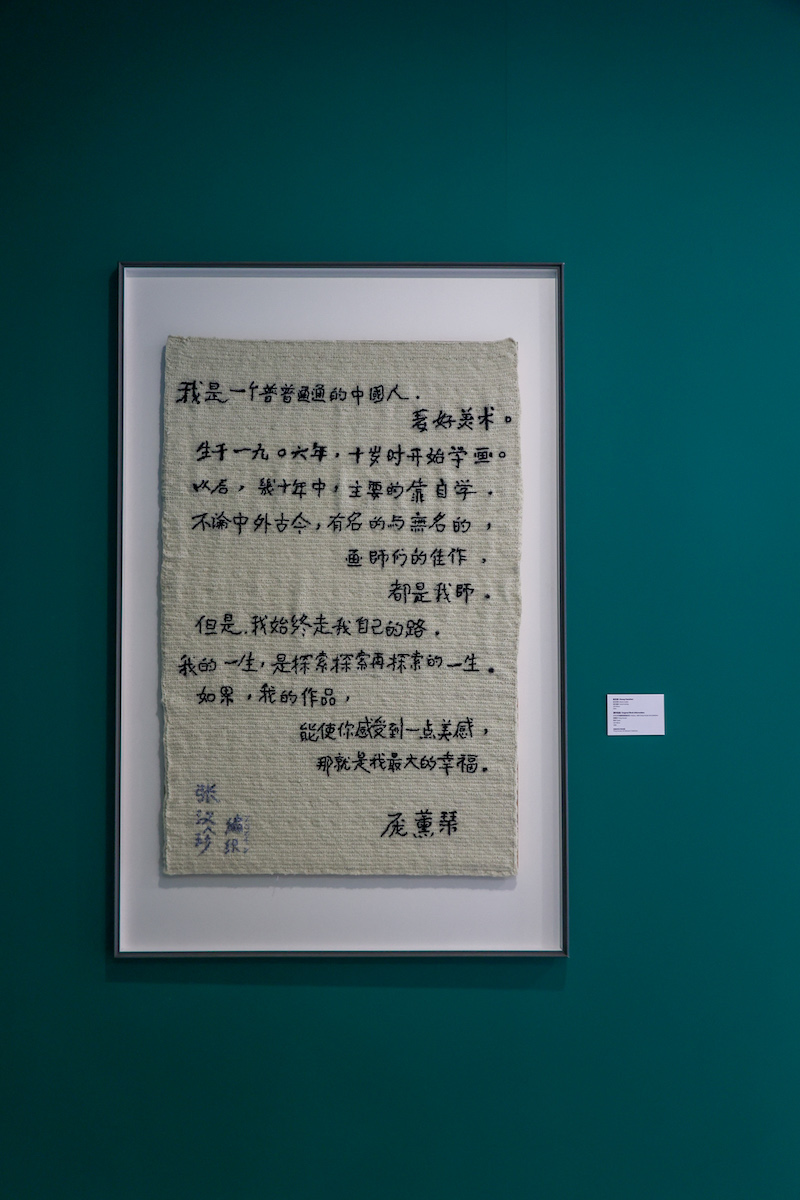 我是一个普普通通的中國人.
爱好美术。
生于一九〇六年，十岁时开始学画。
以后，幾十年中，主要的靠自学.
不論中外古今，有名的与無名的，
画師们的佳作，
都是我師.
但是.我始終走我自己的路.
我的一生，是探索探索再探索的一生.
如果，我的作品，
能使你感受到一点美感，
那就是我最大的幸福.
庞薰琹
张汉珍
編織